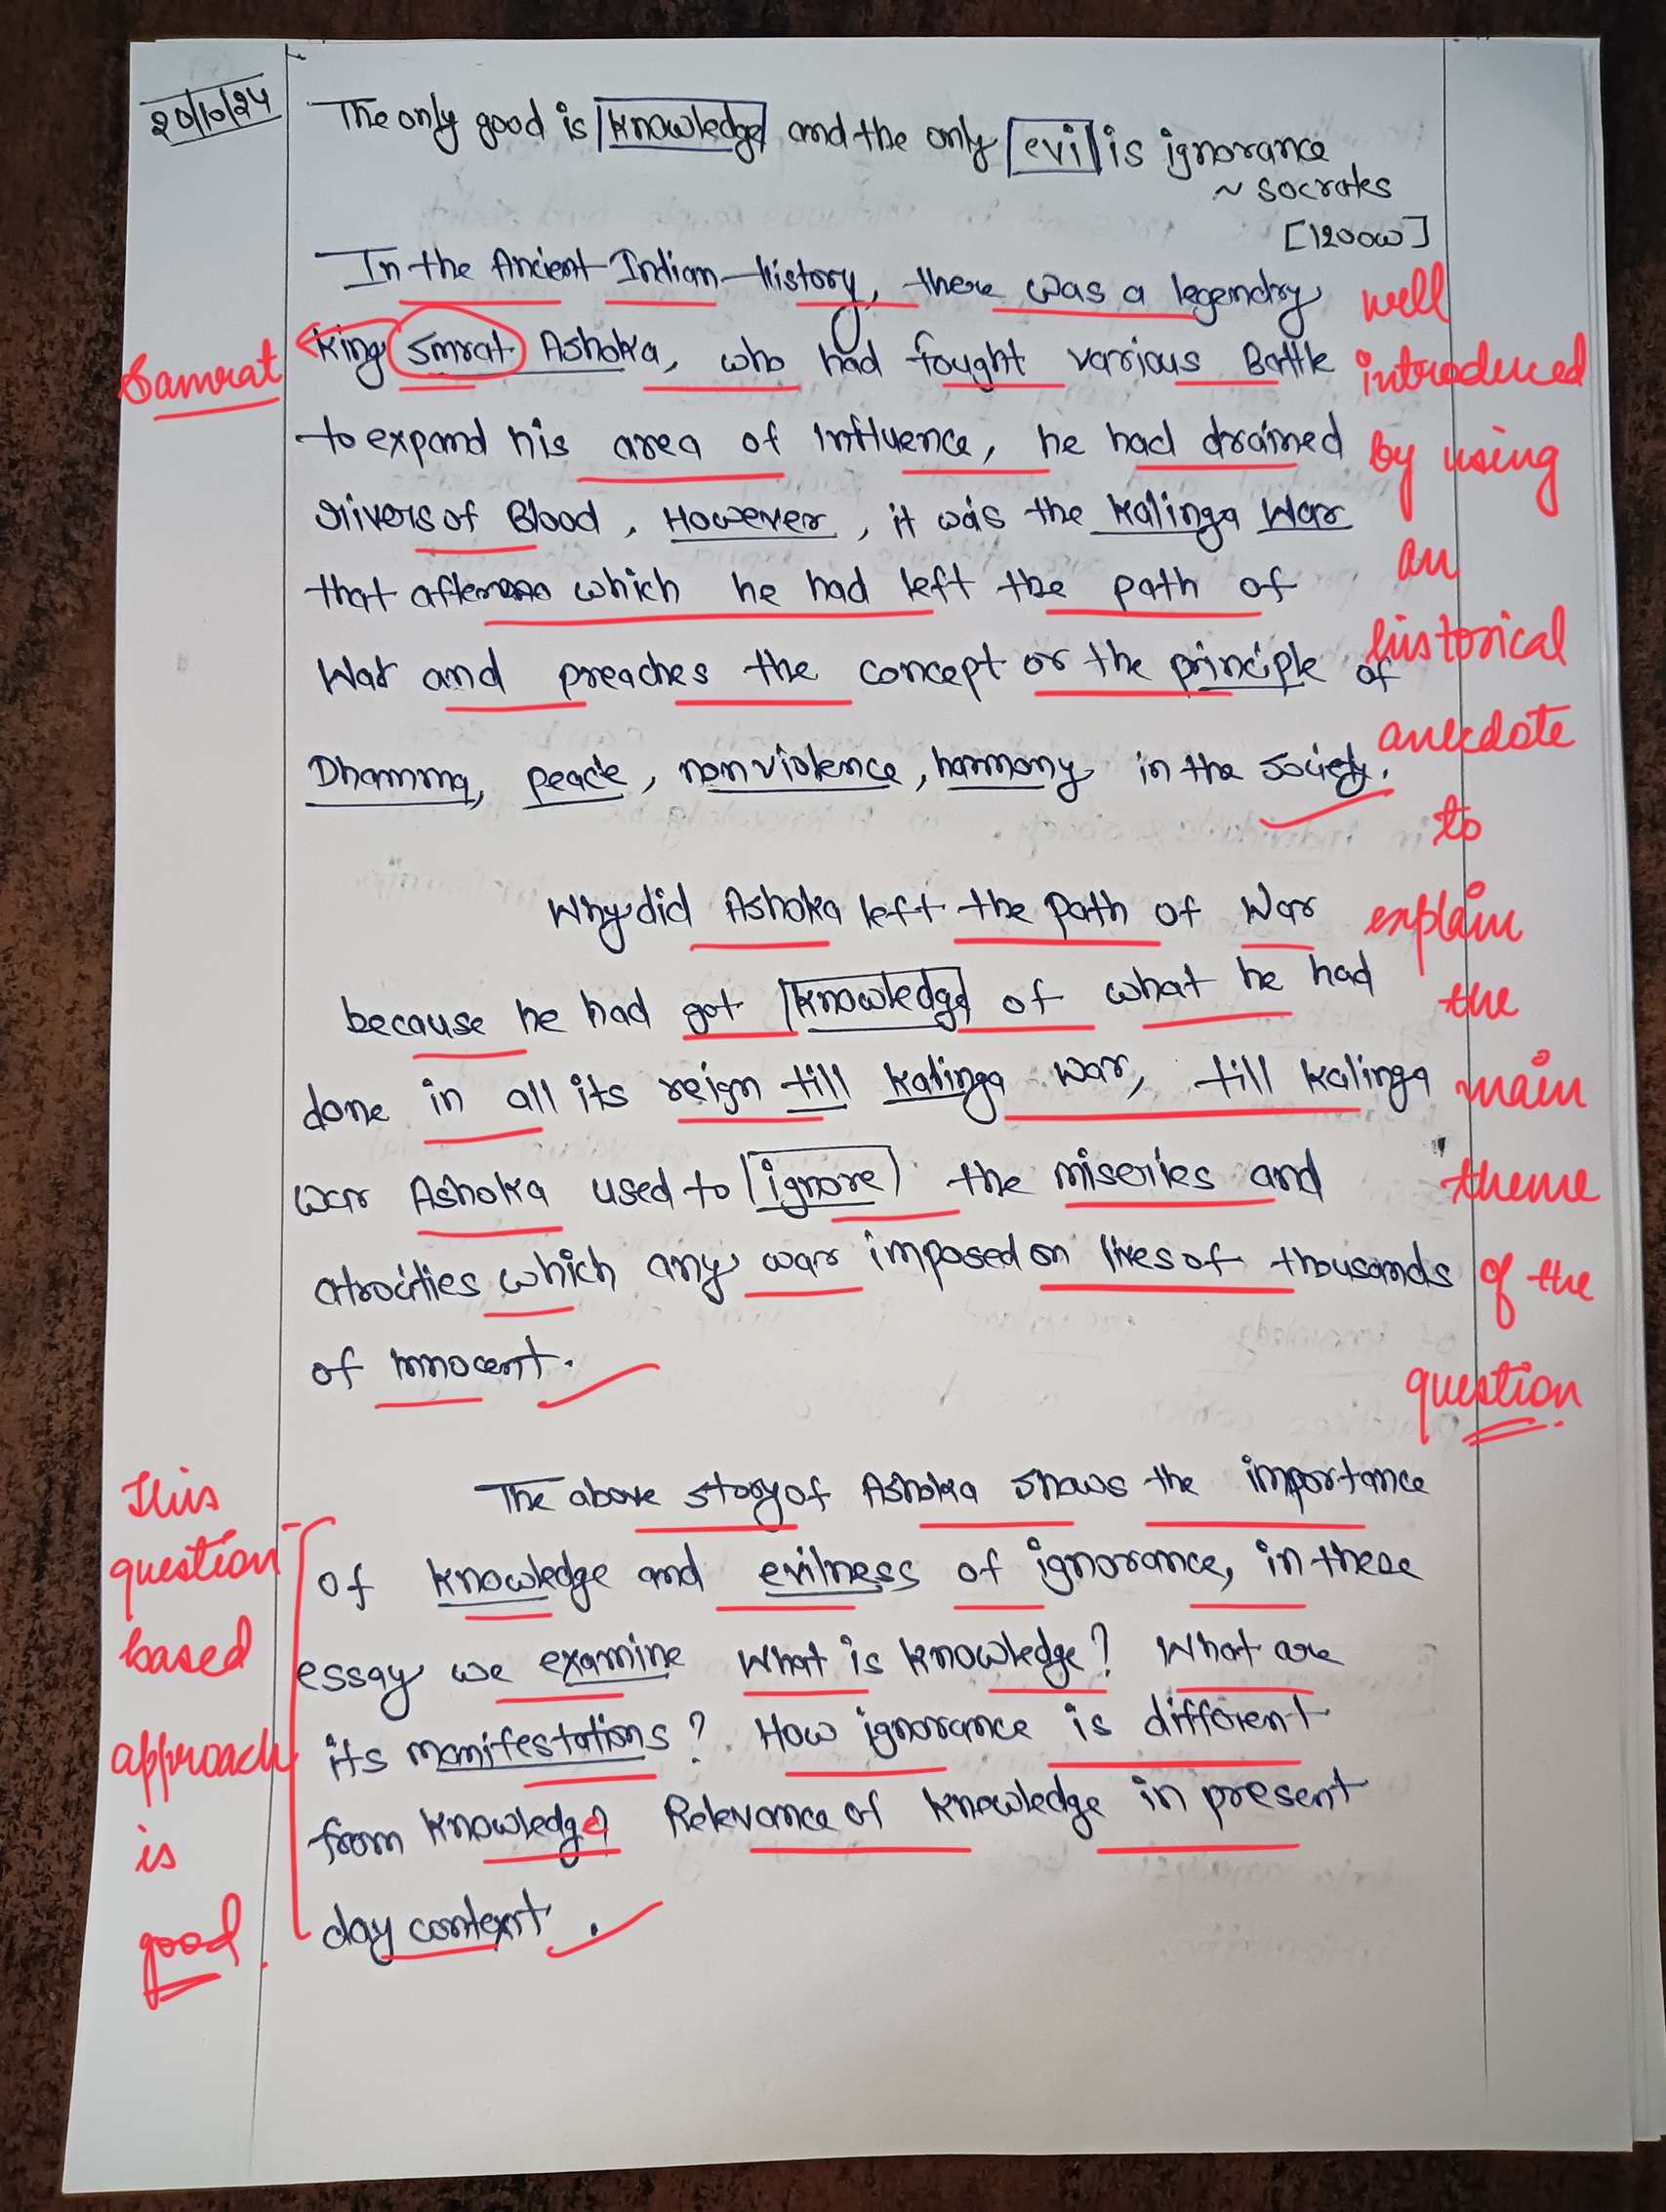 20/10/24
The only good is knowledge and the only evil is ignorance
~ Socrates
[1200w]
In the Ancient Indian History, there was a legendry
King Smrat Ashoka, who had fought various Battle
to expand his area of influence, he had drained
rivers of Blood, However, it was the Kalinga War
that after which he had left the path of
War and preaches the concept or the principle of
Dhamma, peace, nonviolence, harmony in the society.
Why did Ashoka left the path of War
because he had got knowledge of what he had
done in all its reign till Kalinga war, till Kalinga
war Ashoka used to ignore the miseries and
atrocities which any war imposed on lives of thousands
of innocent.
The above story of Ashoka shows the importance
of knowledge and evilness of ignorance, in these
essay we examine What is knowledge? What are
its manifestations? How ignorance is different
from knowledge? Relevance of knowledge in present
day context.
Samrat
well
introduced
by using
an
historical
anecdote
to
explain
the
main
theme
of the
question
This
question
based
approach
is
good.